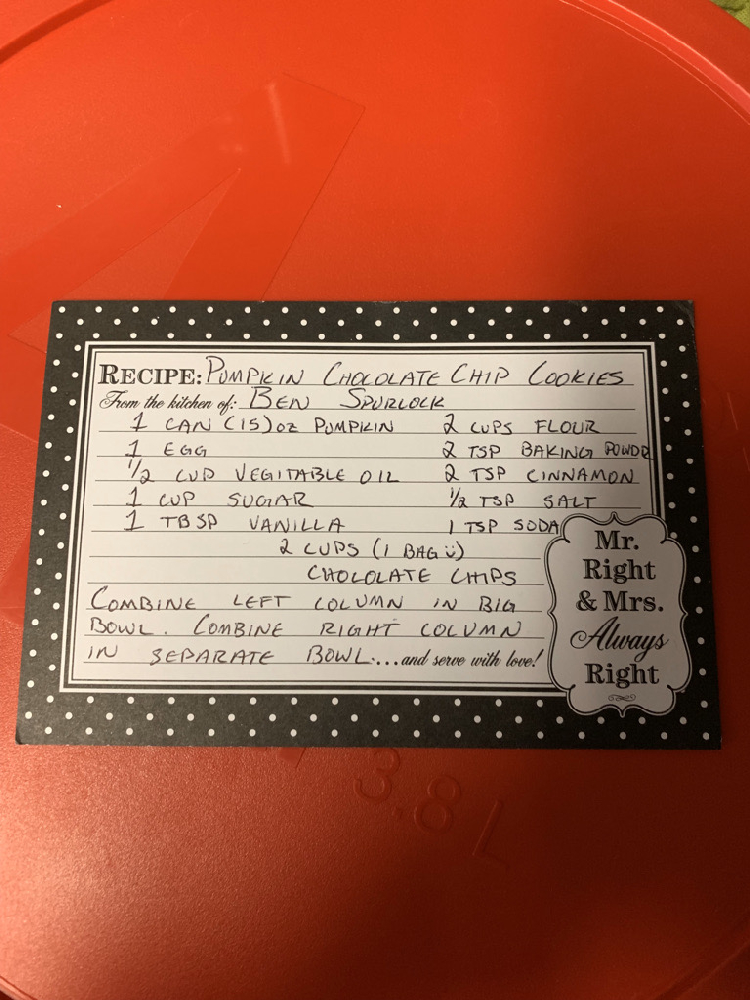 RECIPE: PUMPKIN CHOCOLATE CHIP COOKIES
From the kitchen of: BEN SPURLOCK
1 CAN (15) OZ PUMPKIN 2 CUPS FLOUR
1 EGG 2 TSP BAKING POWDR
1/2 CUP VEGITABLE OIL 2 TSP CINNAMON
1 CUP SUGAR 1/2 TSP SALT
1 TBSP VANILLA 1 TSP SODA
2 CUPS (1 BAG Ü)
CHOCOLATE CHIPS
COMBINE LEFT COLUMN IN BIG
BOWL. COMBINE RIGHT COLUMN
IN SEPARATE BOWL....and serve with love!
Mr.
Right
& Mrs.
Always
Right
3.8 L